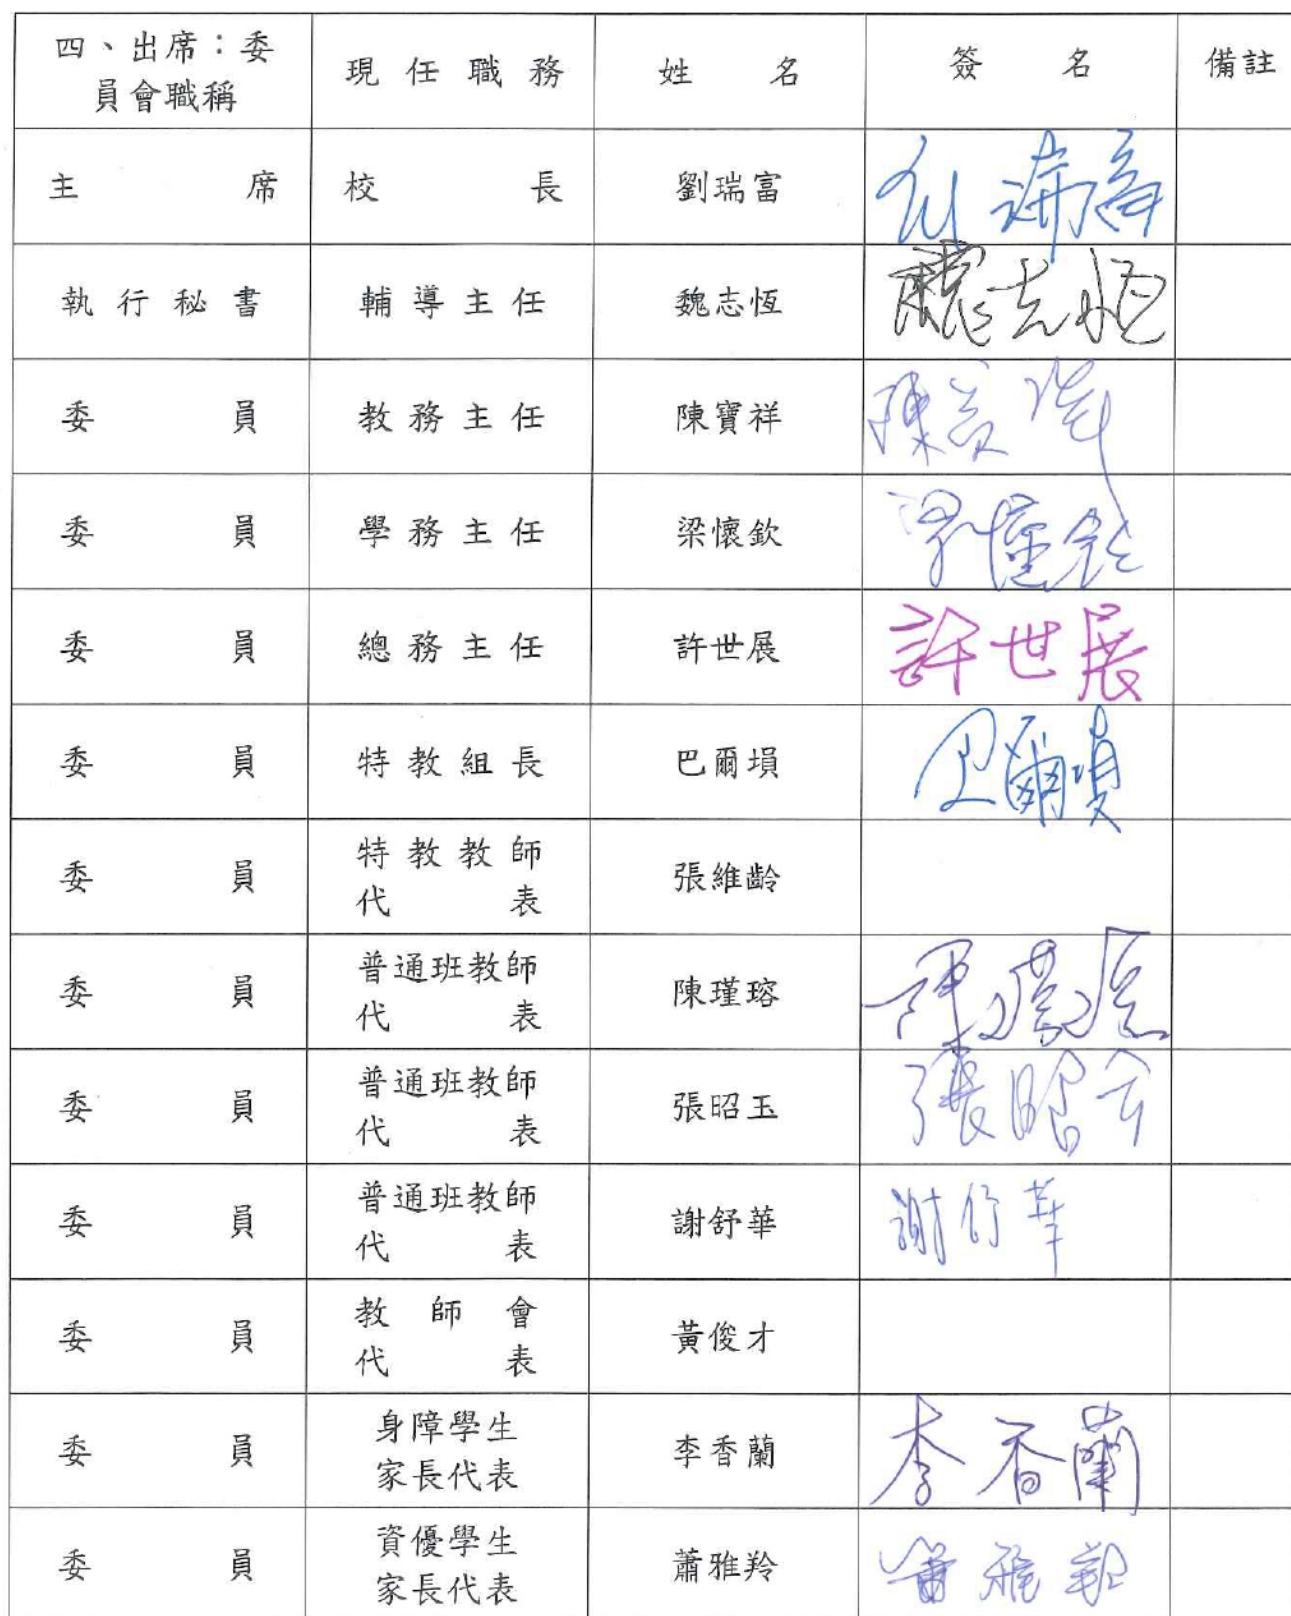 四、出席：委
員會職稱
現任職務
姓名
簽名
備註
主席 校長 劉瑞富
執行秘書 輔導主任 魏志恆 魏志恆
委員 教務主任 陳寶祥
委員 學務主任 梁懷欽
委員 總務主任 許世展 許世展
委員 特教組長 巴爾塤 巴爾塤
委員 特教教師
代表 張維齡
委員 普通班教師
代表 陳瑾瑢
委員 普通班教師
代表 張昭玉
委員 普通班教師
代表 謝舒華 謝舒華
委員 教師會
代表 黃俊才
委員 身障學生
家長代表 李香蘭 李香蘭
委員 資優學生
家長代表 蕭雅羚